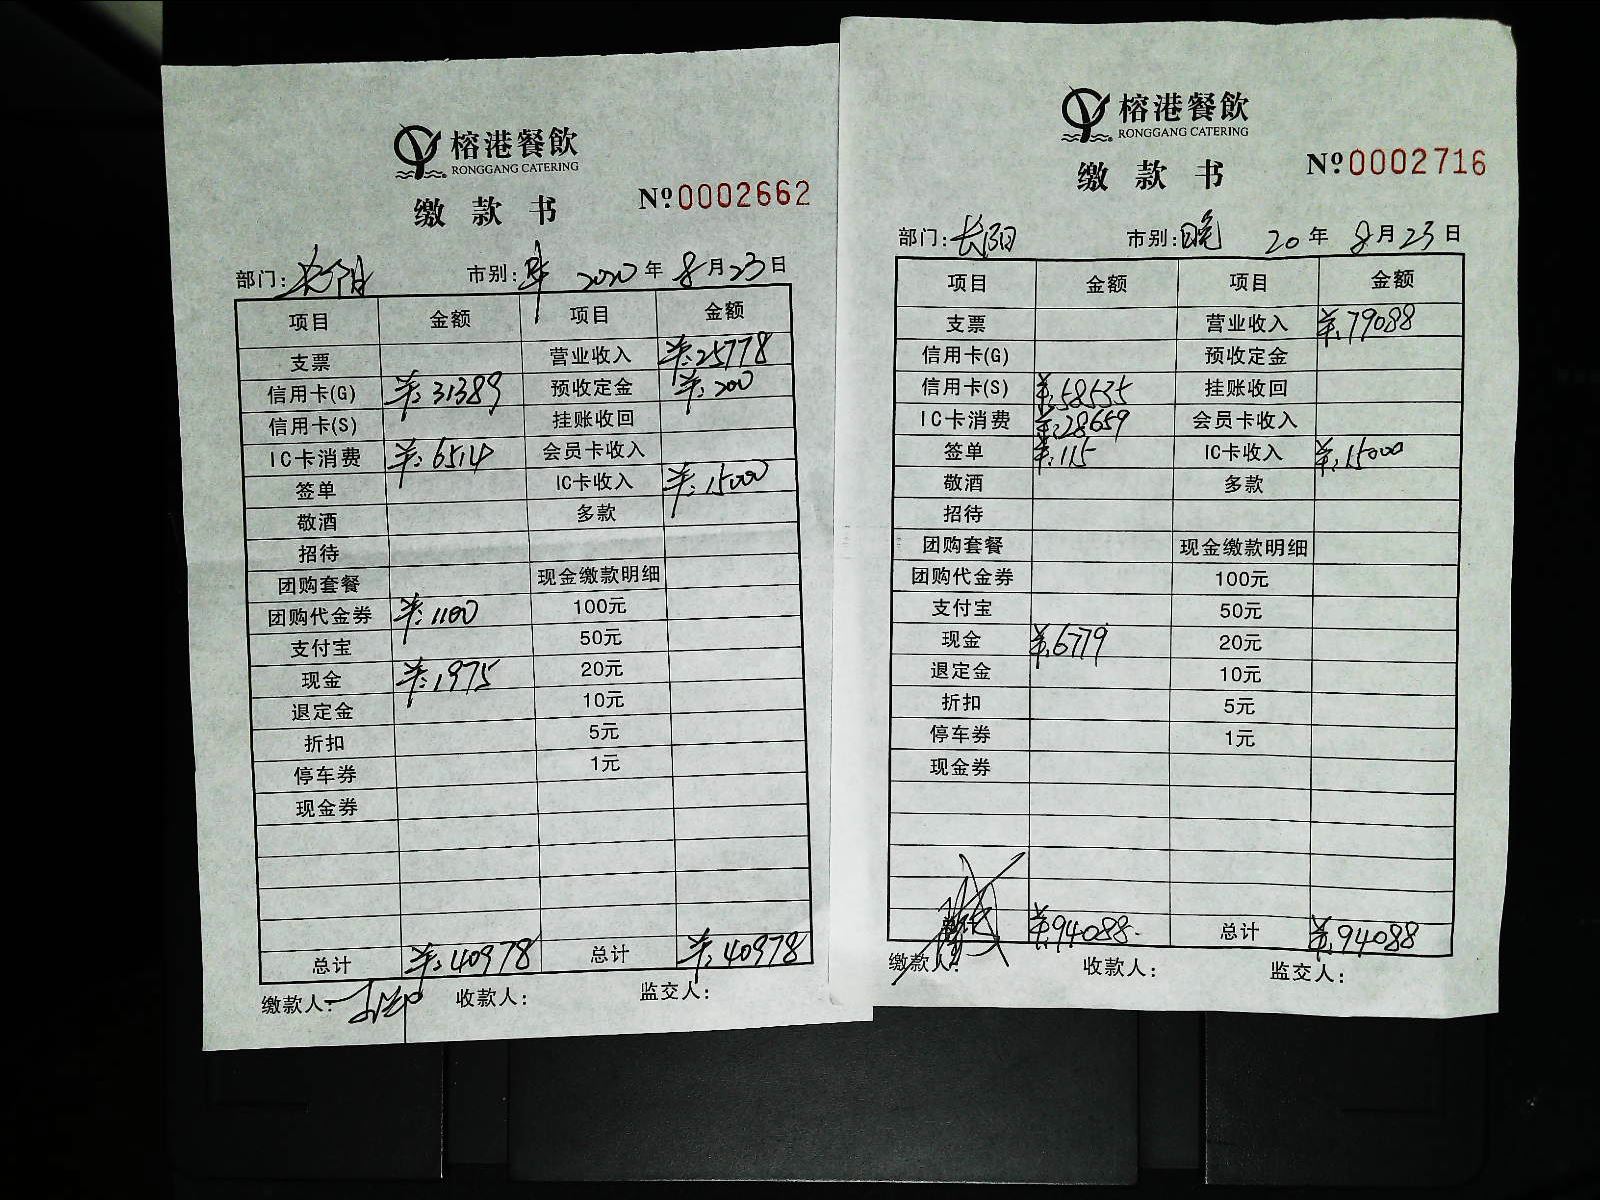 榕港餐飲
RONGGANG CATERING
缴款书
Nº0002662
部门:长阳 市别: 2020年8月23日
项目 金额 项目 金额
支票 营业收入 ¥:25778
信用卡(G) ¥:31389 预收定金 ¥:200
信用卡(S) 挂账收回
IC卡消费 ¥:6514 会员卡收入
签单 IC卡收入 ¥:15000
敬酒 多款
招待
团购套餐 现金缴款明细
团购代金券 ¥:1100 100元
支付宝 50元
现金 ¥:1975 20元
退定金 10元
折扣 5元
停车券 1元
现金券
总计 ¥:40978 总计 ¥:40978
缴款人: 收款人: 监交人:
榕港餐飲
RONGGANG CATERING
缴款书
Nº0002716
部门:长阳 市别:晚 20年8月23日
项目 金额 项目 金额
支票 营业收入 ¥:79088
信用卡(G) 预收定金
信用卡(S) ¥:58535 挂账收回
IC卡消费 ¥:28659 会员卡收入
签单 ¥:115 IC卡收入 ¥:15000
敬酒 多款
招待
团购套餐 现金缴款明细
团购代金券 100元
支付宝 50元
现金 ¥:6779 20元
退定金 10元
折扣 5元
停车券 1元
现金券
¥:94088- 总计 ¥:94088
缴款人: 收款人: 监交人: